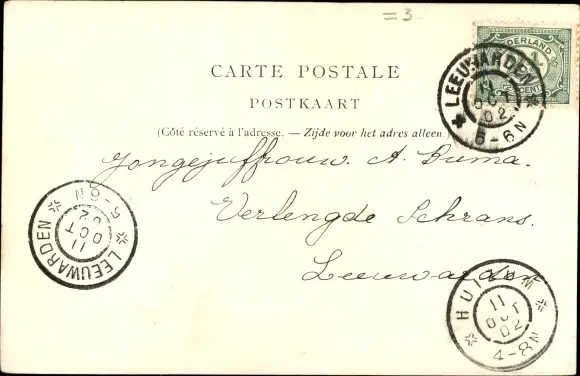 =3
NEDERLAND
CENT
LEEUWARDEN
11
OCT
02
5-6N
CARTE POSTALE
POSTKAART
(Côté réservé à l'adresse. — Zijde voor het adres alleen.)
Jongejuffrouw A. Buma.
Verlengde Schrans.
Leeuwarden
LEEUWARDEN
11
OCT
02
5-6N
HUIZUM
11
OCT
02
4-8N